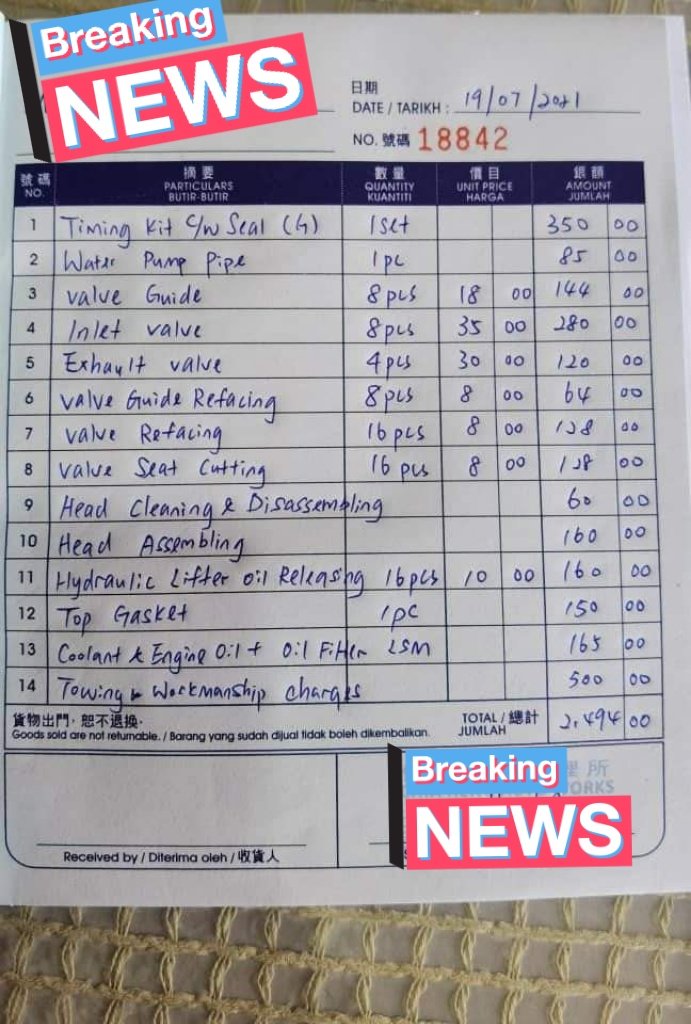 Breaking
NEWS
日期
DATE / TARIKH : 19/07/2021
NO. 號碼 18842
號碼 摘要 數量 價目 銀額
NO. PARTICULARS QUANTITY UNIT PRICE AMOUNT
BUTIR-BUTIR KUANTITI HARGA JUMLAH
1 Timing Kit C/w Seal (4) 1 set 350 00
2 Water Pump Pipe 1 pc 85 00
3 Valve Guide 8 pcs 18 00 144 00
4 Inlet valve 8 pcs 35 00 280 00
5 Exhault valve 4 pcs 30 00 120 00
6 valve Guide Refacing 8 pcs 8 00 64 00
7 valve Refacing 16 pcs 8 00 128 00
8 valve Seat Cutting 16 pcs 8 00 128 00
9 Head Cleaning & Disassembling 60 00
10 Head Assembling 160 00
11 Hydraulic Lifter oil Releasing 16 pcs 10 00 160 00
12 Top Gasket 1 pc 150 00
13 Coolant & Engine Oil + Oil Filter 165 00
14 Towing & Workmanship Charges 500 00
貨物出門，恕不退換． TOTAL / 總計 2,494 00
Goods sold are not returnable. / Barang yang sudah dijual tidak boleh dikembalikan. JUMLAH
理所
Breaking
ORKS
NEWS
Received by / Diterima oleh / 收貨人